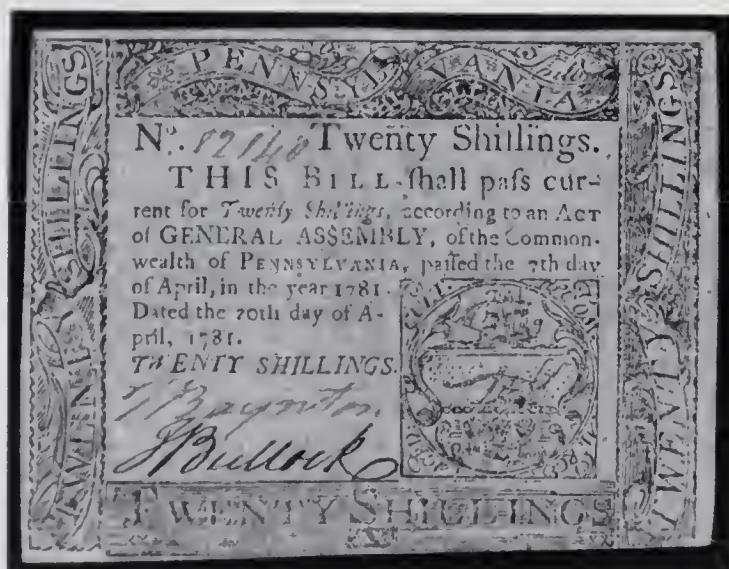 PENNSYLVANIA
TWENTY SHILLINGS
No. 12140 Twenty Shillings.
THIS BILL ſhall paſs cur-
rent for Twenty Shillings, according to an ACT
of GENERAL ASSEMBLY, of the Common-
wealth of PENNSYLVANIA, paſſed the 7th day
of April, in the year 1781.
Dated the 20th day of A-
pril, 1781.
TWENTY SHILLINGS.
T Baynton
J Bullock
TWENTY SHILLINGS
TWENTY SHILLINGS